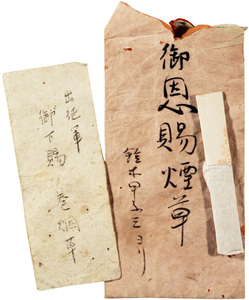 御恩賜煙草
鈴木甲子三ヨリ
出征軍
御下賜
巻煙草